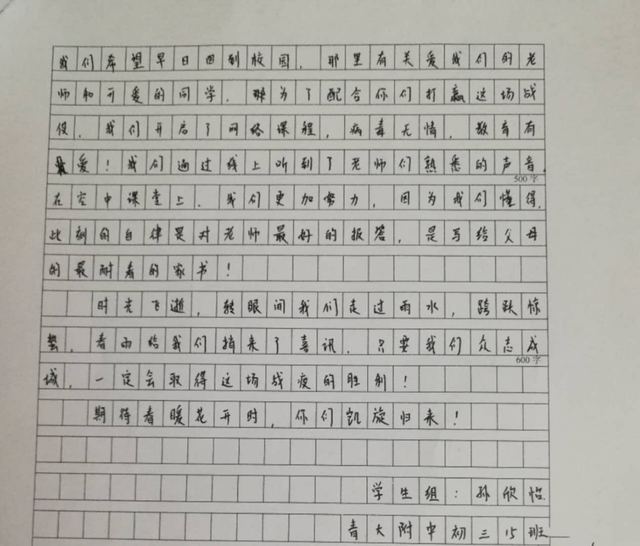 我们希望早日回到校园，那里有关爱我们的老
师和可爱的同学，为了配合你们打赢这场战
役，我们开启了网络课程，病毒无情，教育有
爱！我们通过线上听到了老师们熟悉的声音，
500字
在空中课堂上，我们更加努力，因为我们懂得，
此刻的自律是对老师最好的报答，是写给父母
的最耐看的家书！
时光飞逝，转眼间我们走过雨水，跨跃惊
蛰，春雨给我们捎来了喜讯，只要我们众志成
600字
城，一定会取得这场战疫的胜利！
期待春暖花开时，你们凯旋归来！
学生组：孙欣怡
青大附中初三15班